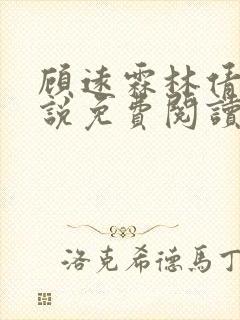 顾远霖林倩
說免費閱讀
洛克希德馬丁